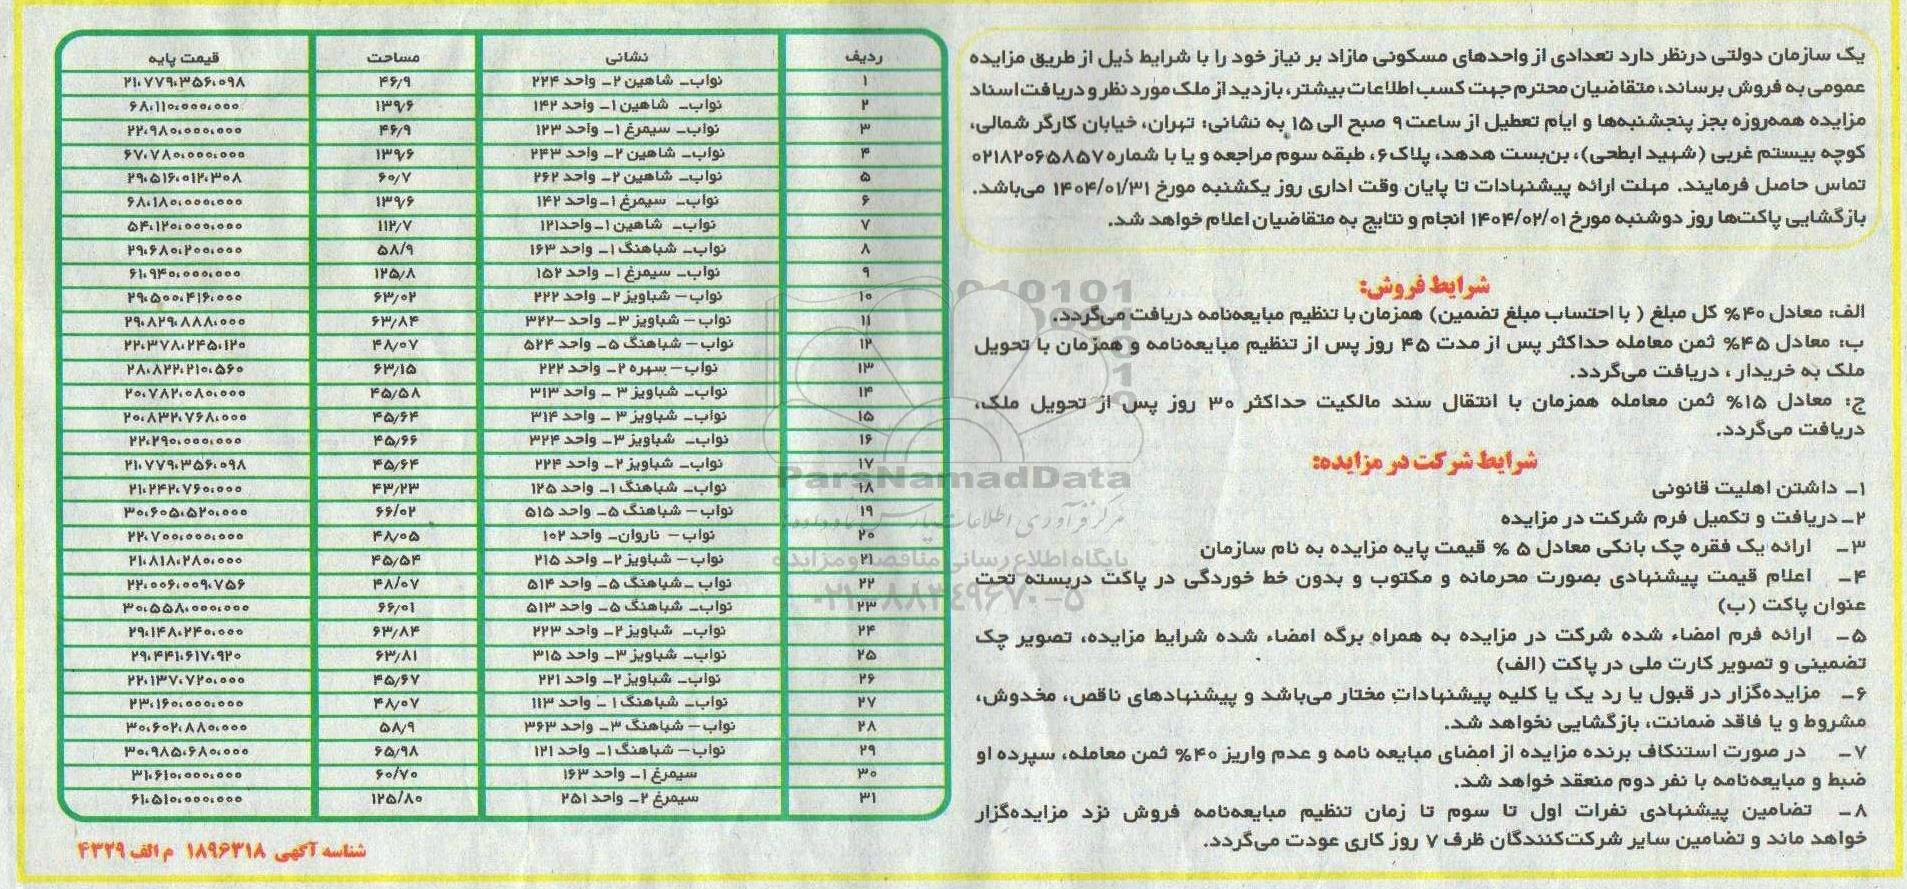 یک سازمان دولتی درنظر دارد تعدادی از واحدهای مسکونی مازاد بر نیاز خود را با شرایط ذیل از طریق مزایده
عمومی به فروش برساند، متقاضیان محترم جهت کسب اطلاعات بیشتر، بازدید از ملک مورد نظر و دریافت اسناد
مزایده همه‌روزه بجز پنجشنبه‌ها و ایام تعطیل از ساعت ۹ صبح الی ۱۵ به نشانی: تهران، خیابان کارگر شمالی،
کوچه بیستم غربی (شهید ابطحی)، بن‌بست هدهد، پلاک ۶، طبقه سوم مراجعه و یا با شماره ۰۲۱۸۲۰۶۵۸۵۷
تماس حاصل فرمایند. مهلت ارائه پیشنهادات تا پایان وقت اداری روز یکشنبه مورخ ۱۴۰۴/۰۱/۳۱ می‌باشد.
بازگشایی پاکت‌ها روز دوشنبه مورخ ۱۴۰۴/۰۲/۰۱ انجام و نتایج به متقاضیان اعلام خواهد شد.
شرایط فروش:
الف: معادل ۴۰% کل مبلغ ( با احتساب مبلغ تضمین) همزمان با تنظیم مبایعه‌نامه دریافت می‌گردد.
ب: معادل ۴۵% ثمن معامله حداکثر پس از مدت ۴۵ روز پس از تنظیم مبایعه‌نامه و همزمان با تحویل
ملک به خریدار ، دریافت می‌گردد.
ج: معادل ۱۵% ثمن معامله همزمان با انتقال سند مالکیت حداکثر ۳۰ روز پس از تحویل ملک،
دریافت می‌گردد.
شرایط شرکت در مزایده:
۱- داشتن اهلیت قانونی
۲- دریافت و تکمیل فرم شرکت در مزایده
۳- ارائه یک فقره چک بانکی معادل ۵ % قیمت پایه مزایده به نام سازمان
۴- اعلام قیمت پیشنهادی بصورت محرمانه و مکتوب و بدون خط خوردگی در پاکت دربسته تحت
عنوان پاکت (ب)
۵- ارائه فرم امضاء شده شرکت در مزایده به همراه برگه امضاء شده شرایط مزایده، تصویر چک
تضمینی و تصویر کارت ملی در پاکت (الف)
۶- مزایده‌گزار در قبول یا رد یک یا کلیه پیشنهادات مختار می‌باشد و پیشنهادهای ناقص، مخدوش،
مشروط و یا فاقد ضمانت، بازگشایی نخواهد شد.
۷- در صورت استنکاف برنده مزایده از امضای مبایعه نامه و عدم واریز ۴۰% ثمن معامله، سپرده او
ضبط و مبایعه‌نامه با نفر دوم منعقد خواهد شد.
۸- تضامین پیشنهادی نفرات اول تا سوم تا زمان تنظیم مبایعه‌نامه فروش نزد مزایده‌گزار
خواهد ماند و تضامین سایر شرکت‌کنندگان ظرف ۷ روز کاری عودت می‌گردد.
ردیف نشانی مساحت قیمت پایه
۱ نواب- شاهین ۲- واحد ۲۲۴ ۴۶/۹ ۲۱،۷۷۹،۳۵۶،۰۹۸
۲ نواب- شاهین ۱- واحد ۱۴۲ ۱۳۹/۶ ۶۸،۱۱۰،۰۰۰،۰۰۰
۳ نواب- سیمرغ ۱- واحد ۱۲۳ ۴۶/۹ ۲۲،۹۸۰،۰۰۰،۰۰۰
۴ نواب- شاهین ۲- واحد ۲۴۳ ۱۳۹/۶ ۶۷،۷۸۰،۰۰۰،۰۰۰
۵ نواب- شاهین ۲- واحد ۲۶۲ ۶۰/۷ ۲۹،۵۱۶،۰۱۲،۳۰۸
۶ نواب- سیمرغ ۱- واحد ۱۴۲ ۱۳۹/۶ ۶۸،۱۸۰،۰۰۰،۰۰۰
۷ نواب- شاهین ۱- واحد ۱۲۱ ۱۱۲/۷ ۵۴،۱۲۰،۰۰۰،۰۰۰
۸ نواب- شباهنگ ۱- واحد ۱۶۳ ۵۸/۹ ۲۹،۶۸۰،۲۰۰،۰۰۰
۹ نواب- سیمرغ ۱- واحد ۱۵۲ ۱۲۵/۸ ۶۱،۹۴۰،۰۰۰،۰۰۰
۱۰ نواب- شباویز ۲- واحد ۲۲۲ ۶۳/۰۲ ۲۹،۵۰۰،۴۱۶،۰۰۰
۱۱ نواب- شباویز ۳- واحد -۳۲۲ ۶۳/۸۴ ۲۹،۸۲۹،۸۸۸،۰۰۰
۱۲ نواب- شباهنگ ۵- واحد ۵۲۴ ۴۸/۰۷ ۲۲،۳۷۸،۲۴۵،۱۲۰
۱۳ نواب- سهره ۲- واحد ۲۲۲ ۶۳/۱۵ ۲۸،۸۲۲،۲۱۰،۵۶۰
۱۴ نواب- شباویز ۳ - واحد ۳۱۳ ۴۵/۵۸ ۲۰،۷۸۲،۰۸۰،۰۰۰
۱۵ نواب- شباویز ۳ - واحد ۳۱۴ ۴۵/۶۴ ۲۰،۸۳۲،۷۶۸،۰۰۰
۱۶ نواب- شباویز ۳- واحد ۳۲۴ ۴۵/۶۶ ۲۲،۲۹۰،۰۰۰،۰۰۰
۱۷ نواب- شباویز ۲- واحد ۲۲۴ ۴۵/۶۴ ۲۱،۷۷۹،۳۵۶،۰۹۸
۱۸ نواب- شباهنگ ۱- واحد ۱۲۵ ۴۳/۲۳ ۲۱،۲۴۲،۷۶۰،۰۰۰
۱۹ نواب- شباهنگ ۵- واحد ۵۱۵ ۶۶/۰۲ ۳۰،۶۰۵،۵۲۰،۰۰۰
۲۰ نواب- ناروان- واحد ۱۰۲ ۴۸/۰۵ ۲۲،۷۰۰،۰۰۰،۰۰۰
۲۱ نواب- شباویز ۲- واحد ۲۱۵ ۴۵/۵۴ ۲۱،۸۱۸،۲۸۰،۰۰۰
۲۲ نواب - شباهنگ ۵- واحد ۵۱۴ ۴۸/۰۷ ۲۲،۰۰۶،۰۰۹،۷۵۶
۲۳ نواب- شباهنگ ۵- واحد ۵۱۳ ۶۶/۰۱ ۳۰،۵۵۸،۰۰۰،۰۰۰
۲۴ نواب- شباویز ۲- واحد ۲۲۳ ۶۳/۸۴ ۲۹،۱۴۸،۲۴۰،۰۰۰
۲۵ نواب- شباویز ۳- واحد ۳۱۵ ۶۳/۸۱ ۲۹،۴۴۱،۶۱۷،۹۲۰
۲۶ نواب- شباویز ۲- واحد ۲۲۱ ۴۵/۶۷ ۲۲،۱۳۷،۷۲۰،۰۰۰
۲۷ نواب- شباهنگ ۱ - واحد ۱۱۳ ۴۸/۰۷ ۲۳،۱۶۰،۰۰۰،۰۰۰
۲۸ نواب- شباهنگ ۳- واحد ۳۶۳ ۵۸/۹ ۳۰،۶۰۲،۸۸۰،۰۰۰
۲۹ نواب- شباهنگ ۱- واحد ۱۲۱ ۶۵/۹۸ ۳۰،۹۸۵،۶۸۰،۰۰۰
۳۰ سیمرغ ۱- واحد ۱۶۳ ۶۰/۷۰ ۳۱،۶۱۰،۰۰۰،۰۰۰
۳۱ سیمرغ ۲- واحد ۲۵۱ ۱۲۵/۸۰ ۶۱،۵۱۰،۰۰۰،۰۰۰
شناسه آگهی ۱۸۹۶۳۱۸ م الف ۴۳۲۹
ParsNamadData
پایگاه اطلاع رسانی مناقصه و مزایده
۰۲۱-۸۸۳۴۹۶۷۰-۵